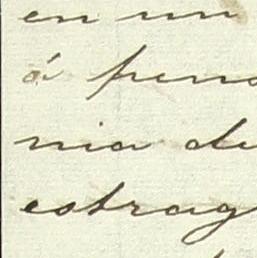 en un
á pens
nia de
estrag